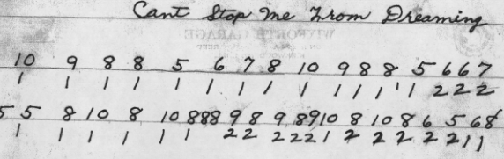 Cant Stop Me From Dreaming
10 9 8 8 5 6 7 8 10 9 8 8 5 6 6 7
1 1 1 1 1 1 1 1 1 1 1 1 1 2 2 2
5 5 8 10 8 10 8 8 8 9 8 9 8 9 10 8 10 8 6 5 6 8
1 1 1 1 1 1 2 2 2 2 2 1 2 2 2 2 2 1 1